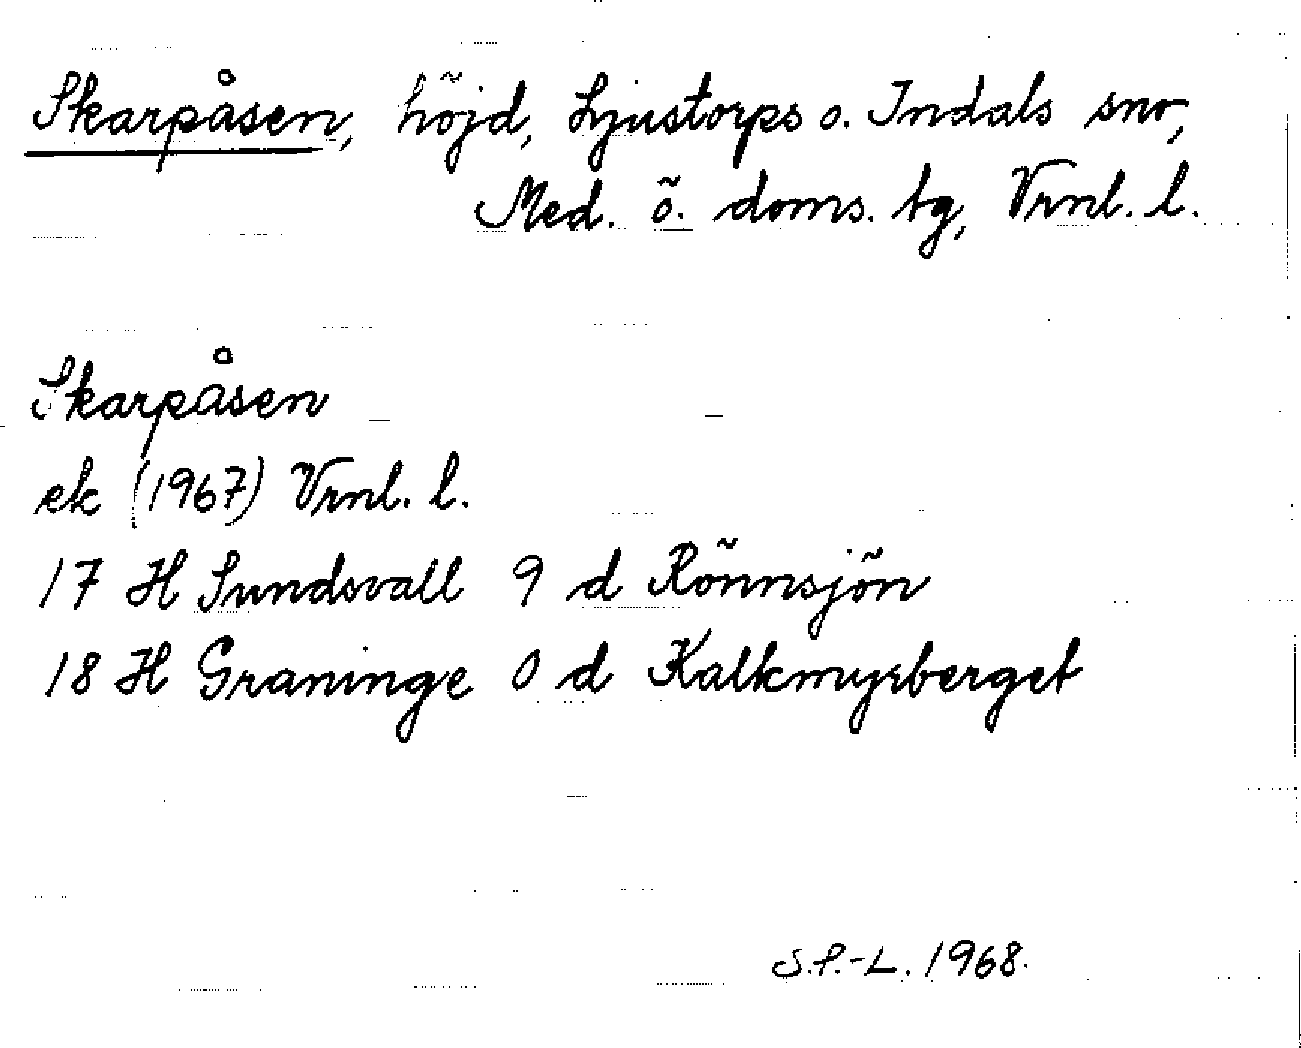 Skarpåsen, höjd, Ljustorps o. Indals snr,
Med. ö. doms. tg, Vrnl. l.
Skarpåsen
ek (1967) Vrnl. l.
17 H Sundsvall 9 d Rönnsjön
18 H Graninge 0 d Kalkmyrberget
S.P.-L. 1968.